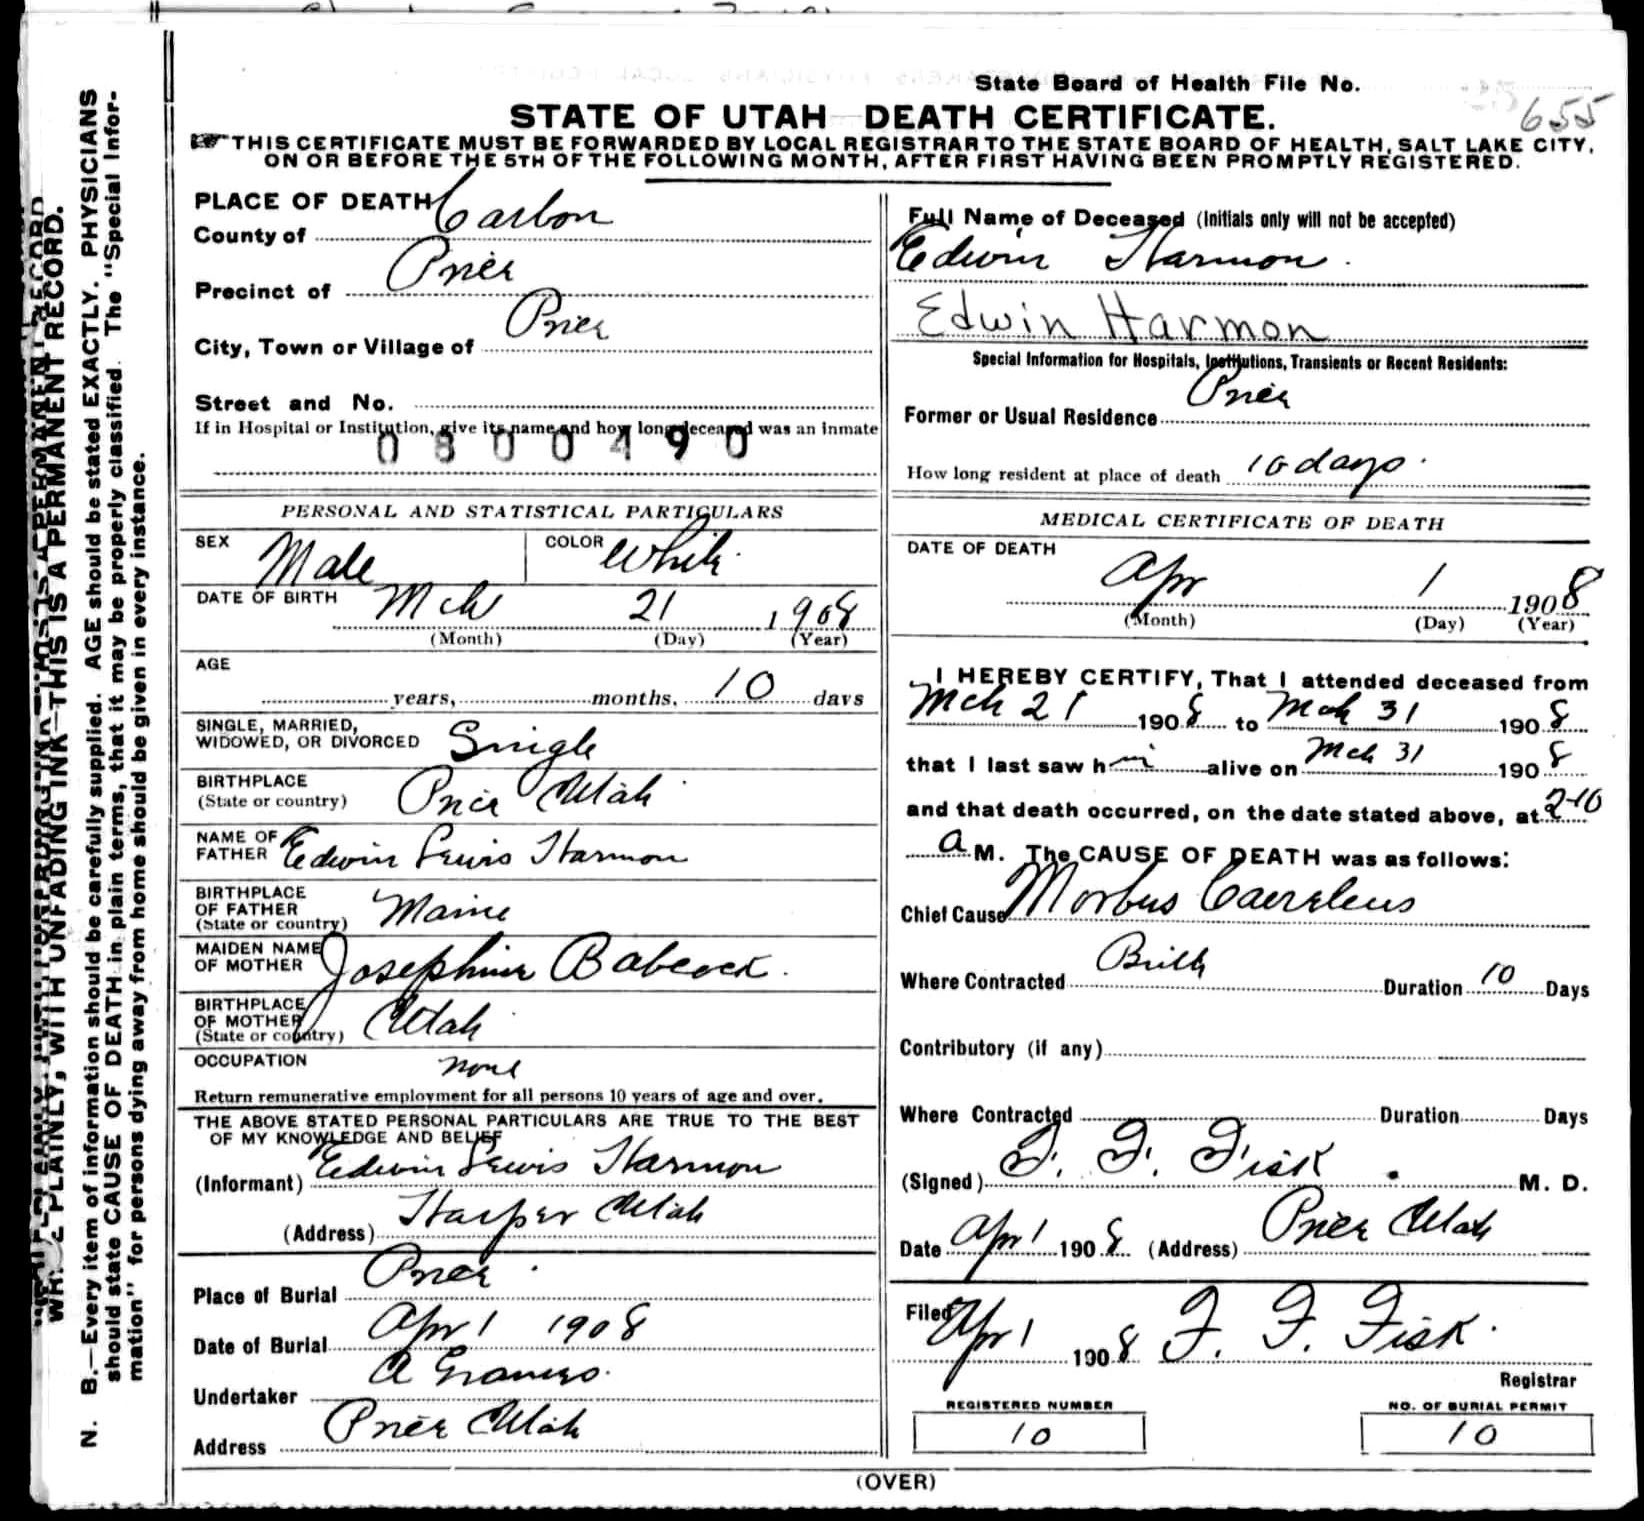 State Board of Health File No.
655
STATE OF UTAH—DEATH CERTIFICATE.
THIS CERTIFICATE MUST BE FORWARDED BY LOCAL REGISTRAR TO THE STATE BOARD OF HEALTH, SALT LAKE CITY,
ON OR BEFORE THE 5TH OF THE FOLLOWING MONTH, AFTER FIRST HAVING BEEN PROMPTLY REGISTERED.
WRITE PLAINLY, WITH UNFADING INK—THIS IS A PERMANENT RECORD.
N. B.—Every item of information should be carefully supplied. AGE should be stated EXACTLY. PHYSICIANS
should state CAUSE OF DEATH in plain terms, that it may be properly classified. The "Special Infor-
mation" for persons dying away from home should be given in every instance.
PLACE OF DEATH
County of Carbon
Precinct of Price
City, Town or Village of Price
Street and No.
If in Hospital or Institution, give its name and how long deceased was an inmate
0800490
PERSONAL AND STATISTICAL PARTICULARS
SEX Male COLOR White
DATE OF BIRTH Mch 21 1908
(Month) (Day) (Year)
AGE
years, months, 10 days
SINGLE, MARRIED,
WIDOWED, OR DIVORCED Single
BIRTHPLACE
(State or country) Price Utah
NAME OF
FATHER Edwin Lewis Harmon
BIRTHPLACE
OF FATHER
(State or country) Maine
MAIDEN NAME
OF MOTHER Josephine Babcock.
BIRTHPLACE
OF MOTHER
(State or country) Utah
OCCUPATION none
Return remunerative employment for all persons 10 years of age and over.
THE ABOVE STATED PERSONAL PARTICULARS ARE TRUE TO THE BEST
OF MY KNOWLEDGE AND BELIEF
(Informant) Edwin Lewis Harmon
(Address) Harper Utah
Place of Burial Price
Date of Burial Apr 1 1908
Undertaker A
Address Price Utah
Full Name of Deceased (Initials only will not be accepted)
Edwin Harmon.
Edwin Harmon
Special Information for Hospitals, Institutions, Transients or Recent Residents:
Former or Usual Residence Price
How long resident at place of death 10 days.
MEDICAL CERTIFICATE OF DEATH
DATE OF DEATH
Apr 1 1908
(Month) (Day) (Year)
I HEREBY CERTIFY, That I attended deceased from
Mch 21 1908 to Mch 31 1908
that I last saw him alive on Mch 31 1908
and that death occurred, on the date stated above, at 2-10
a M. The CAUSE OF DEATH was as follows:
Chief Cause Morbus Caeruleus
Where Contracted Birth Duration 10 Days
Contributory (if any)
Where Contracted Duration Days
(Signed) F. F. Fisk. M. D.
Date Apr 1 1908 (Address) Price Utah
Filed Apr 1 1908 F. F. Fisk.
Registrar
REGISTERED NUMBER
10
NO. OF BURIAL PERMIT
10
(OVER)